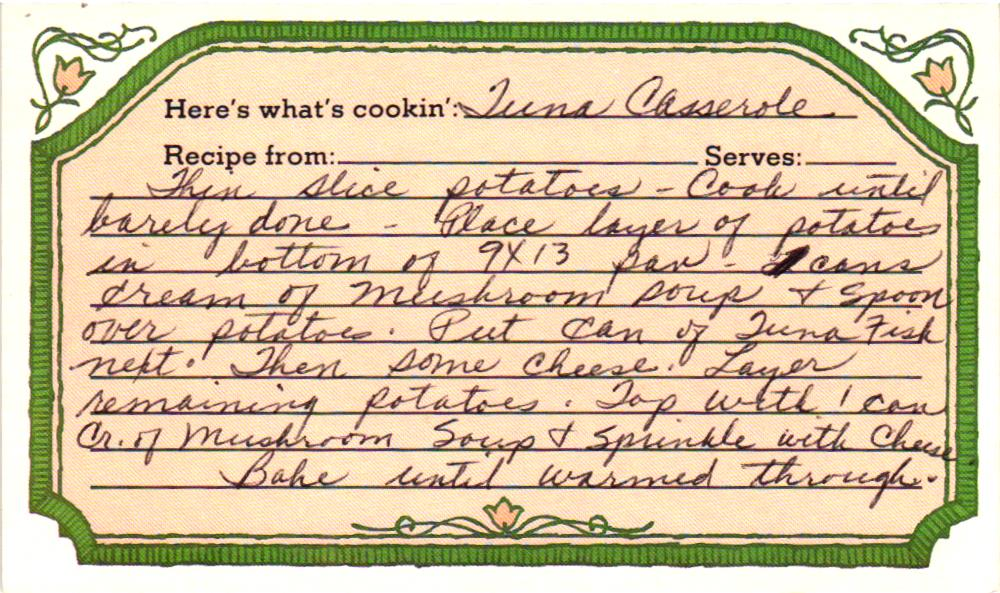 Here's what's cookin': Tuna Casserole
Recipe from: Serves:
Thin slice potatoes - Cook until
barely done - Place layer of potatoes
in bottom of 9X13 pan - cans
cream of Mushroom soup & spoon
over potatoes. Put can of Tuna Fish
next. Then some cheese. Layer
remaining potatoes. Top with 1 can
Cr. of Mushroom Soup & Sprinkle with Cheese.
Bake until warmed through.